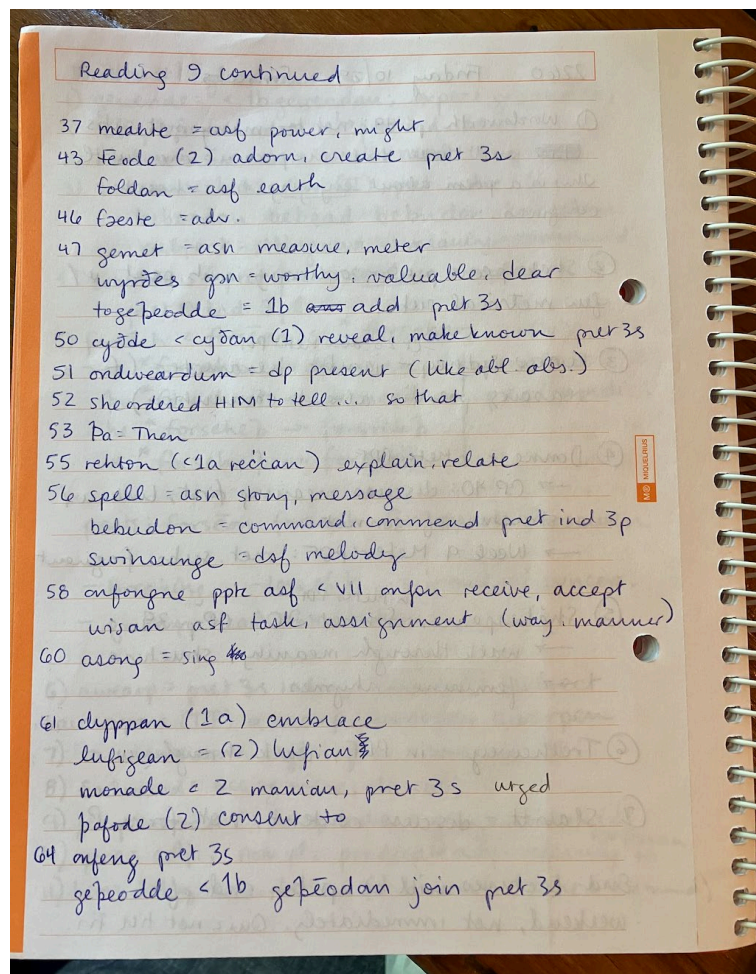 Reading 9 continued
37 meahte = asf power, might
43 teode (2) adorn, create pret 3s
foldan = asf earth
46 fæste = adv.
47 gemet = asn measure, meter
wyrðes gsn = worthy, valuable, dear
togeþeodde = 1b add pret 3s
50 cyðde < cyðan (1) reveal, make known pret 3s
51 ondweardum = dp present (like abl. abs.)
52 she ordered HIM to tell... so that
53 Þa = Then
55 rehton (<1a reċċan) explain, relate
56 spell = asn story, message
bebudon = command, commend pret ind 3p
swinsunge = dsf melody
58 onfongne pptc asf < VII onfon receive, accept
wisan asf task, assignment (way, manner)
60 asong = sing
61 clyppan (1a) embrace
lufigean = (2) lufian
monade < 2 manian, pret 3s urged
þafode (2) consent to
64 onfeng pret 3s
geþeodde < 1b geþēodan join pret 3s
MIQUELRIUS